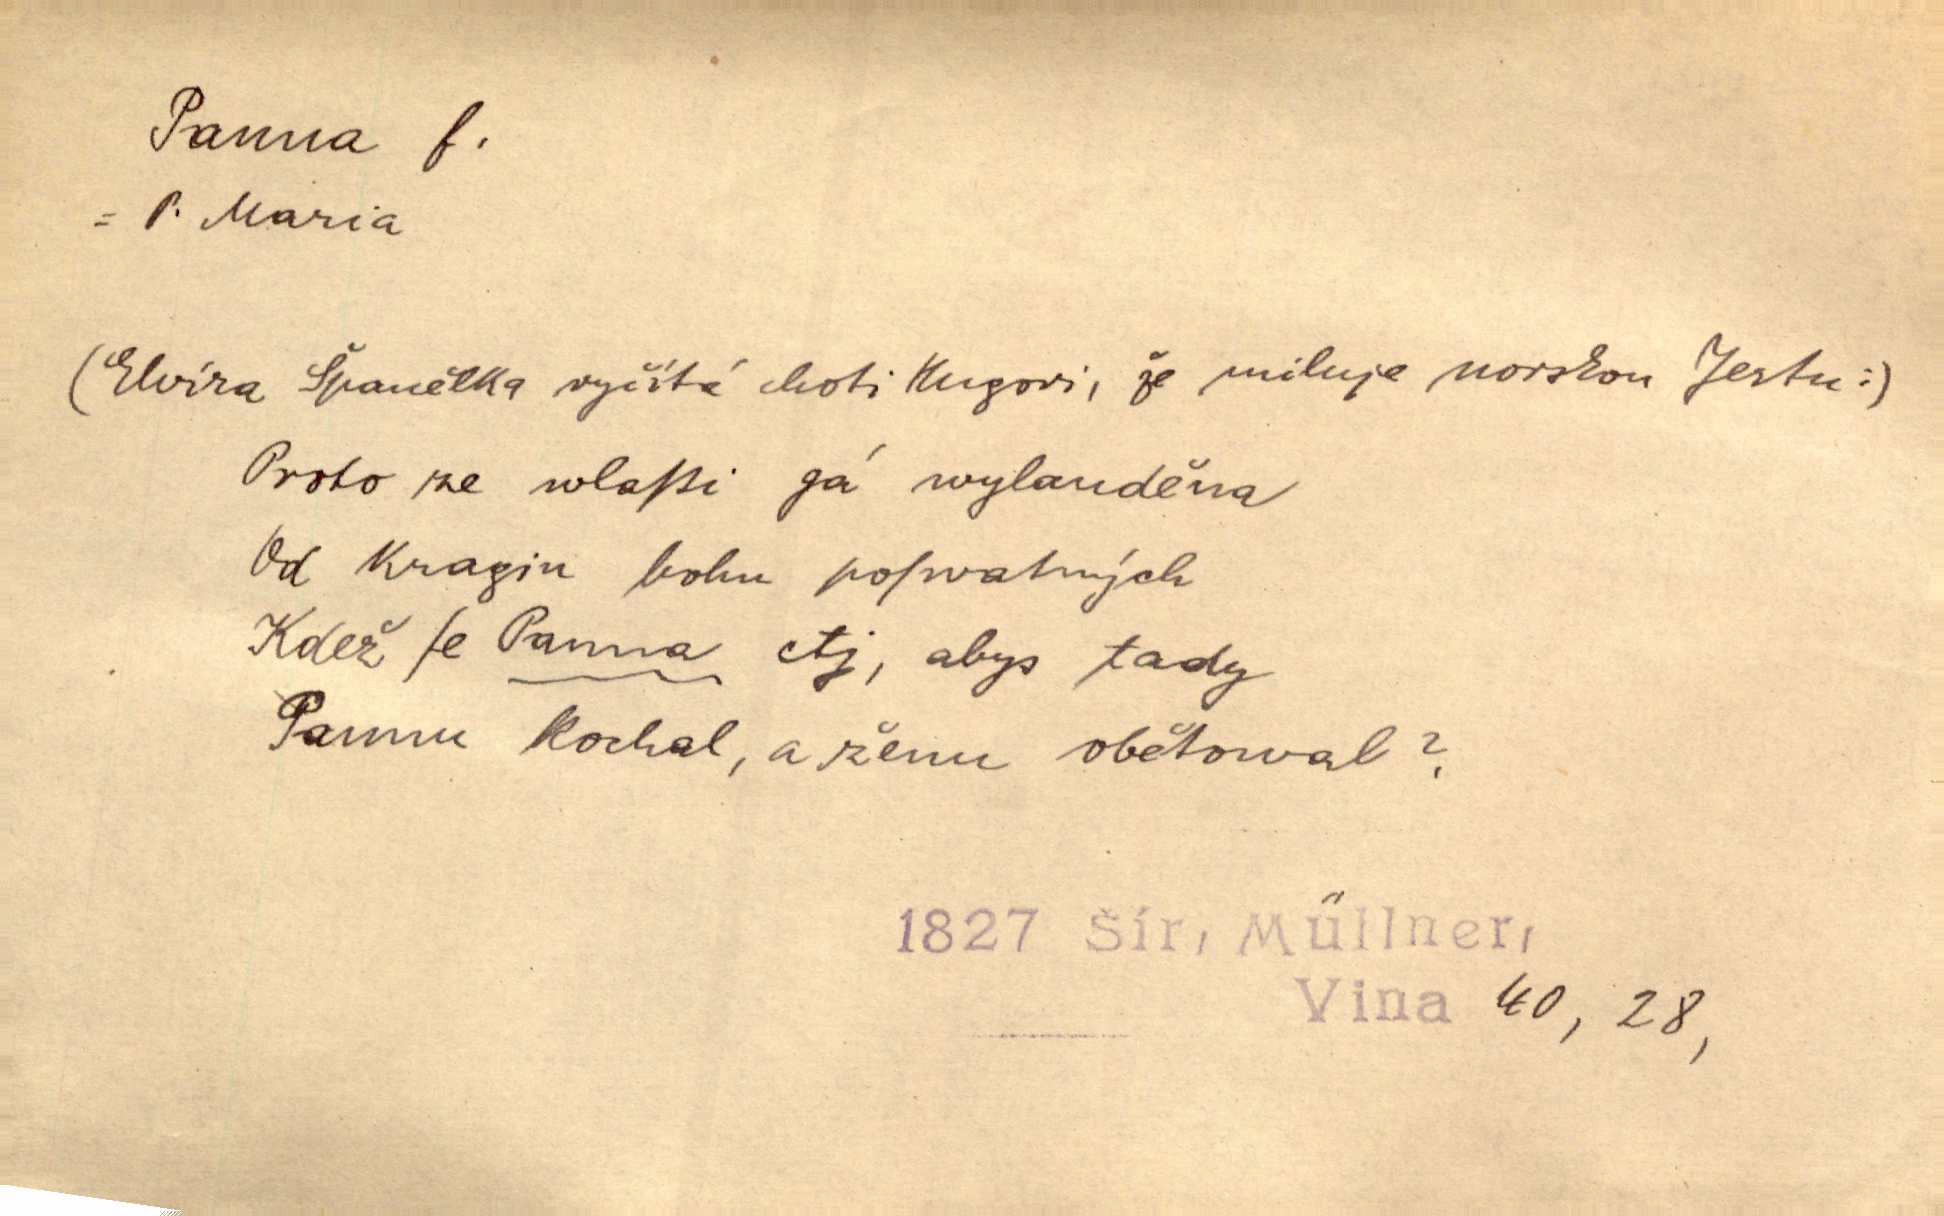 Panna f.
= P. Maria
(Elvíra Španělka vyčítá choti Hugovi, že miluje norskou Jertu:)
Proto ze wlaſti gá wylauděna
Od Kragin bohu poſwatných
Kdež ſe Panna ctj, abys tady
Pannu kochal, a ženu obětowal?
1827 Šír, Müllner,
Vina 40, 28,